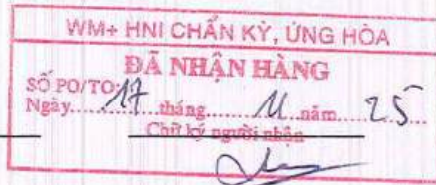 WM+ HNI CHẤN KỲ, ỨNG HÒA
ĐÃ NHẬN HÀNG
SỐ PO/TO
Ngày 17 tháng 11 năm 25
Chữ ký người nhận